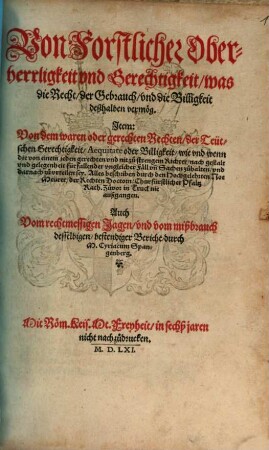 Von Forstlicher Ober-
herrligkeit vnd Gerechtigkeit/ was
die Recht/ der Gebrauch/ vnd die Billigkeit
deßhalben vermög.
Item:
Von dem waren oder gerechten Rechten/ der Teut-
schen Gerechtigkeit/ Aequitate oder Billigkeit/ wie vnd wenn
die von einem jeden gerechten vnd nit zů strengem Richter/ nach gestalt
vnd gelegenheit für fallender vngleicher Fäll vñ Sachen zůhalten/ vnd
darnach zů vrteilen sey. Alles beschriben durch den Hochgelehrten Noe
Meurer/ der Rechten Doctorn/ Churfürstlicher Pfaltz
Rath. Zůvor in Truck nie
außgangen.
Auch
Vom rechtmessigen Jagen/ vnd vom mißbrauch
desselbigen/ bestendiger Bericht/ durch
M. Cyriacum Span-
genberg.
Mit Röm. Keis. Mt. Freyheit/ in sechß jaren
nicht nachzůdrucken.
M. D. LXI.